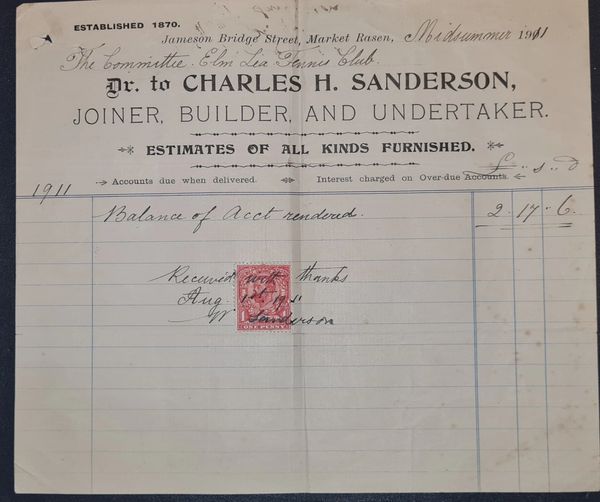 ESTABLISHED 1870.
Jameson Bridge Street, Market Rasen, Midsummer 1911
The Committee. Elm Lea Tennis Club.
Dr. to CHARLES H. SANDERSON,
JOINER, BUILDER, AND UNDERTAKER.
ESTIMATES OF ALL KINDS FURNISHED.
£ " s " d
1911
Accounts due when delivered. Interest charged on Over-due Accounts.
Balance of Acct rendered. 2. 17 " 6.
Received with thanks
Aug. 1st 1911
Sanderson
1 ONE PENNY